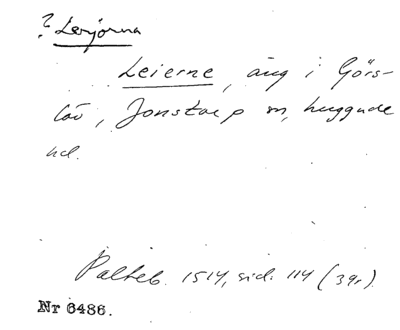 ? Lerjorna
Leierne, äng i Görs-
löv, Jonstorp sn, Luggude
hd.
Palteb. 1514, sid. 114 (39r)
Nr 6486.